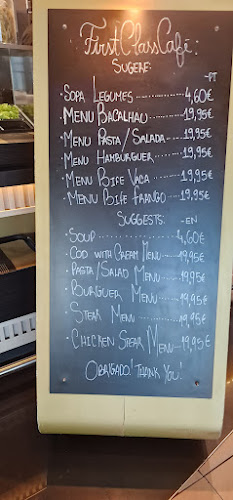 FirstClassCafé:
SUGERE:
-PT
·SOPA LEGUMES 4,60€
·MENU BACALHAU 19,95€
·MENU PASTA/SALADA 19,95€
·MENU HAMBURGUER 19,95€
·MENU BIFE VACA 19,95€
·MENU BIFE FRANGO 19,95€
SUGGESTS: -EN
·SOUP 4,60€
·COD WITH CREAM MENU 19,95€
·PASTA/SALAD MENU 19,95€
·BURGUER MENU 19,95€
·STEAK MENU 19,95€
·CHICKEN STEAK MENU 19,95€
OBRIGADO! THANK YOU!